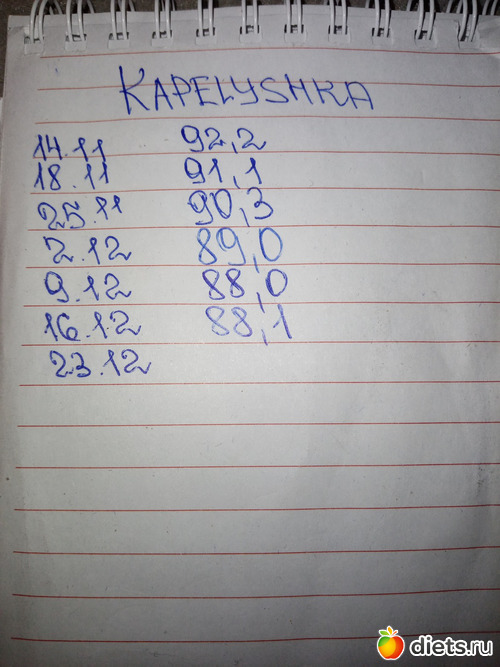 KAPELYSHKA
14.11 92,2
18.11 91,1
25.11 90,3
2.12 89,0
9.12 88,0
16.12 88,1
23.12
diets.ru